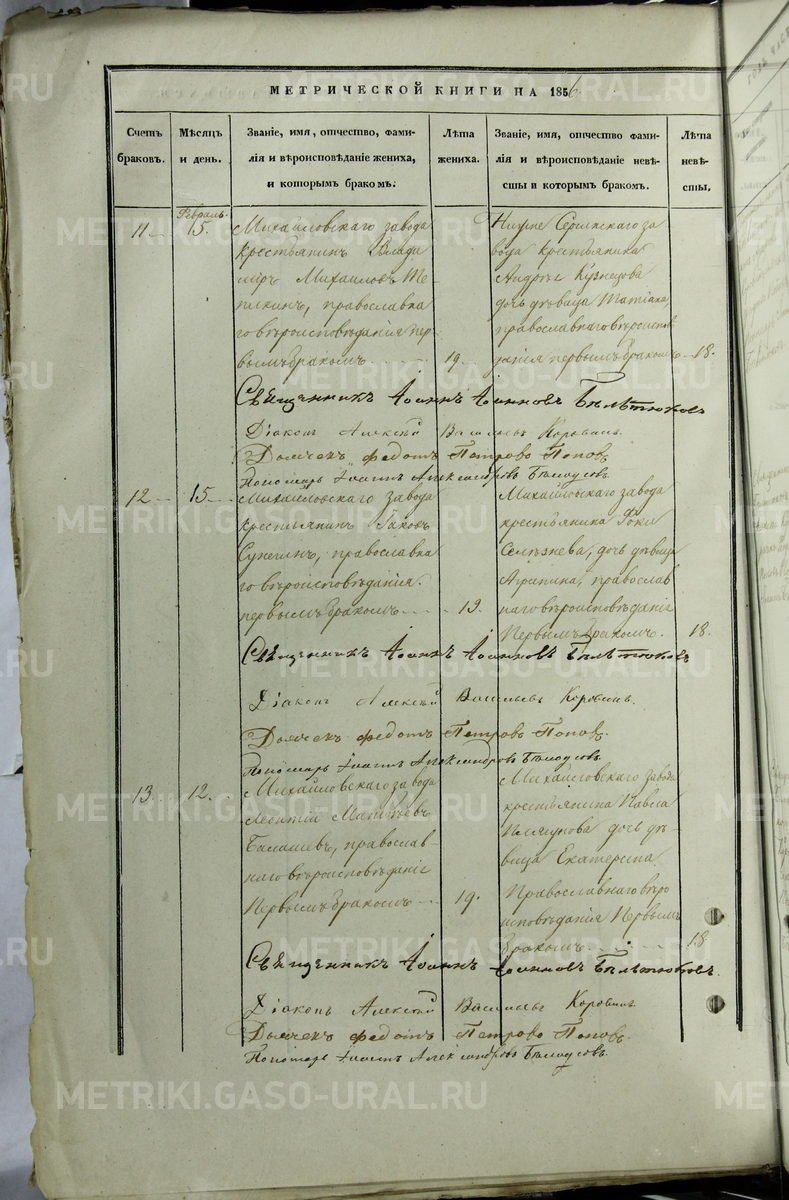 МЕТРИЧЕСКОЙ КНИГИ НА 1856
Счетъ браковъ.
Мѣсяцъ и день.
Званіе, имя, отчество, фами-
лія и вѣроисповѣданіе жениха,
и которымъ бракомъ.
Лѣта жениха.
Званіе, имя, отчество фами-
лія и вѣроисповѣданіе невѣ-
сты и которымъ бракомъ.
Лѣта невѣ-
сты.
Февраль.
11
15.
Михайловскаго завода
крестьянинъ Влади
миръ Михайловъ
православна
го вѣроисповѣданія пер
вымъ бракомъ
19.
Сергинскаго за
вода крестьянина
Андрея Кузнецова
дочь дѣвица Татіана,
православнаго вѣроиспов
данія первымъ бракомъ
18.
Священникъ Іоаннъ Іоанновъ
Діаконъ Алексѣй Васильевъ Коровинъ.
Дьячекъ Федотъ Петровъ Попов
Пономарь Іоаннъ Александровъ
12
15.
Михайловскаго завода
крестьянинъ Іаковъ
православна
го вѣроисповѣданія.
первымъ бракомъ
19.
Михайловскаго завода
крестьянина Фоки
Селезнева, дочь дѣвица
православ
наго вѣроисповѣданія
Первымъ бракомъ.
18.
Священникъ Іоаннъ Іоанновъ
Діаконъ Алексѣй Васильевъ Коровинъ.
Дьячекъ Федотъ Петровъ Попов.
Пономарь Іоаннъ Александровъ
13
12.
Михайловскаго завода
Леонтій Матвѣевъ
Балашевъ, православ-
наго вѣроисповѣданія
Первымъ бракомъ
19.
Михайловскаго завода
крестьянина Павла
дочь дѣ-
вица Екатерина
Православнаго вѣро
исповѣданія Первымъ
бракомъ
18
Священникъ Іоаннъ Іоанновъ
Діаконъ Алексѣй Васильевъ Коровинъ
Дьячекъ Федотъ Петрово Попов.
Пономарь Іоаннъ Александровъ
METRIKI.GASO-URAL.RU